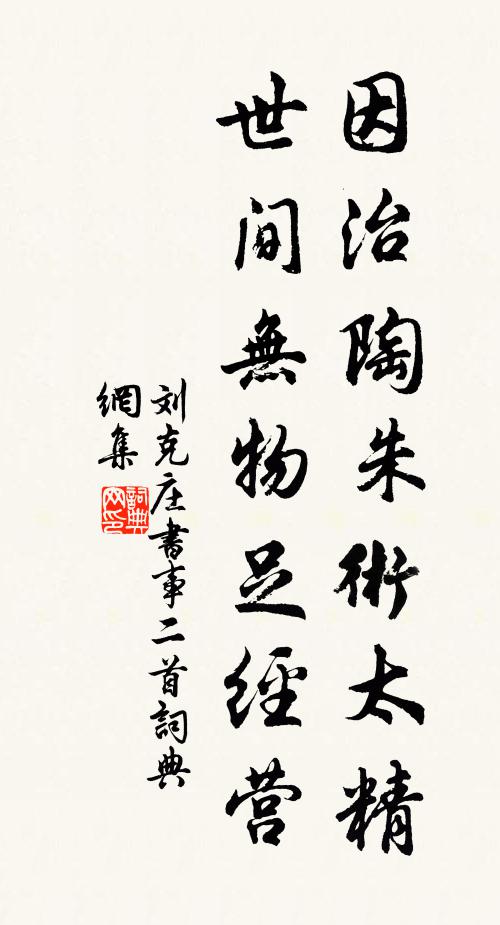 因治陶朱術太精
世间無物足經营
刘克庄書事二首詞典
網集
詞典
网印